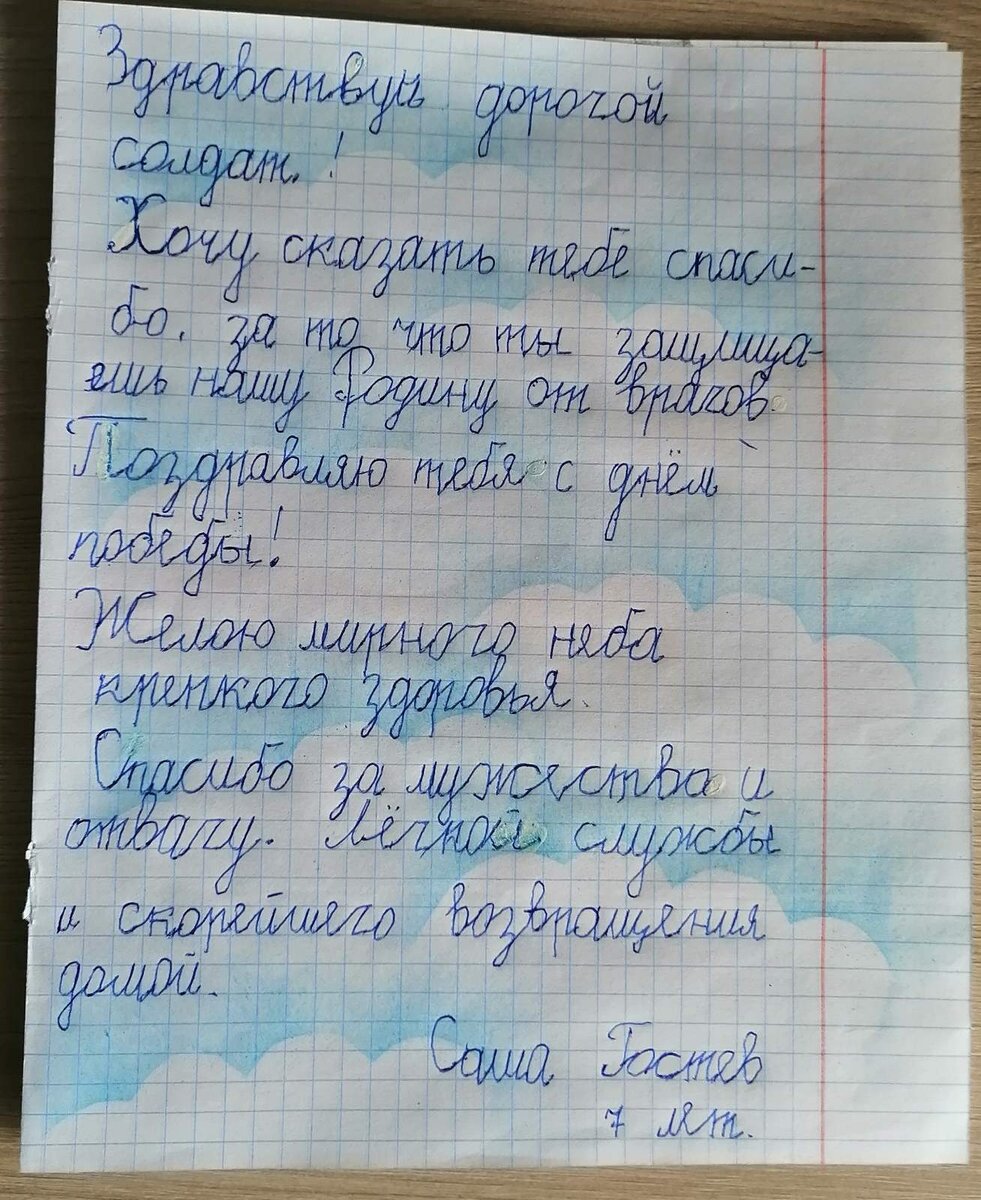 Здравствуй дорогой
солдат.!
Хочу сказать тебе спаси-
бо. за то что ты защища-
ешь нашу Родину от врагов.
Поздравляю тебя с днём
победы!
Желою мирного неба
крепкого здоровья.
Спасибо за мужества и
отвагу. Лёгной службы
и скорейшего возвращения
домой.
Саша Гостев
7 лет.